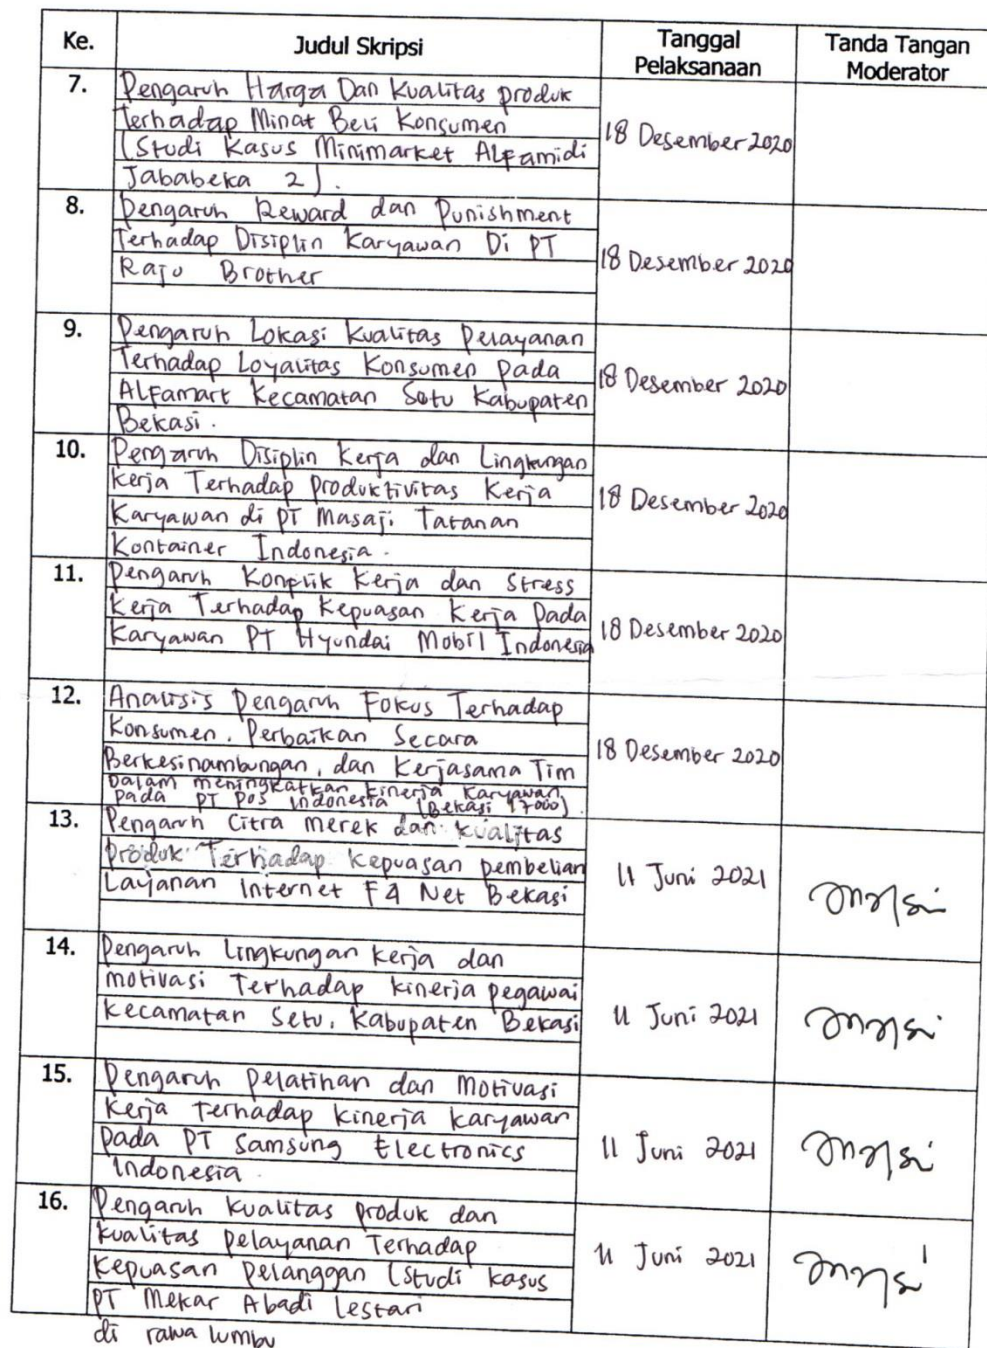 Ke. Judul Skripsi Tanggal Pelaksanaan Tanda Tangan Moderator
7. Pengaruh Harga Dan Kualitas produk
Terhadap Minat Beli Konsumen
(Studi Kasus Minimarket Alfamidi
Jababeka 2).
18 Desember 2020
8. Pengaruh Reward dan Punishment
Terhadap Disiplin Karyawan Di PT
Raju Brother
18 Desember 2020
9. Pengaruh Lokasi Kualitas Pelayanan
Terhadap Loyalitas Konsumen Pada
Alfamart Kecamatan Setu Kabupaten
Bekasi.
18 Desember 2020
10. Pengaruh Disiplin Kerja dan Lingkungan
Kerja Terhadap Produktivitas Kerja
Karyawan di PT Masaji Tatanan
Kontainer Indonesia.
18 Desember 2020
11. Pengaruh Konflik Kerja dan Stress
Kerja Terhadap Kepuasan Kerja Pada
Karyawan PT Hyundai Mobil Indonesia
18 Desember 2020
12. Analisis Pengaruh Fokus Terhadap
Konsumen, Perbaikan Secara
Berkesinambungan, dan Kerjasama Tim
Dalam meningkatkan kinerja Karyawan
pada PT Pos Indonesia (Bekasi 17000).
18 Desember 2020
13. Pengaruh Citra merek dan kualitas
produk Terhadap kepuasan pembelian
Layanan Internet F4 Net Bekasi
11 Juni 2021
14. Pengaruh Lingkungan kerja dan
motivasi Terhadap kinerja pegawai
Kecamatan Setu, Kabupaten Bekasi
11 Juni 2021
15. Pengaruh pelatihan dan Motivasi
Kerja terhadap kinerja karyawan
pada PT Samsung Electronics
Indonesia.
11 Juni 2021
16. Pengaruh kualitas produk dan
kualitas pelayanan Terhadap
Kepuasan pelanggan (Studi kasus
PT Mekar Abadi lestari
di rawa lumbu
11 Juni 2021